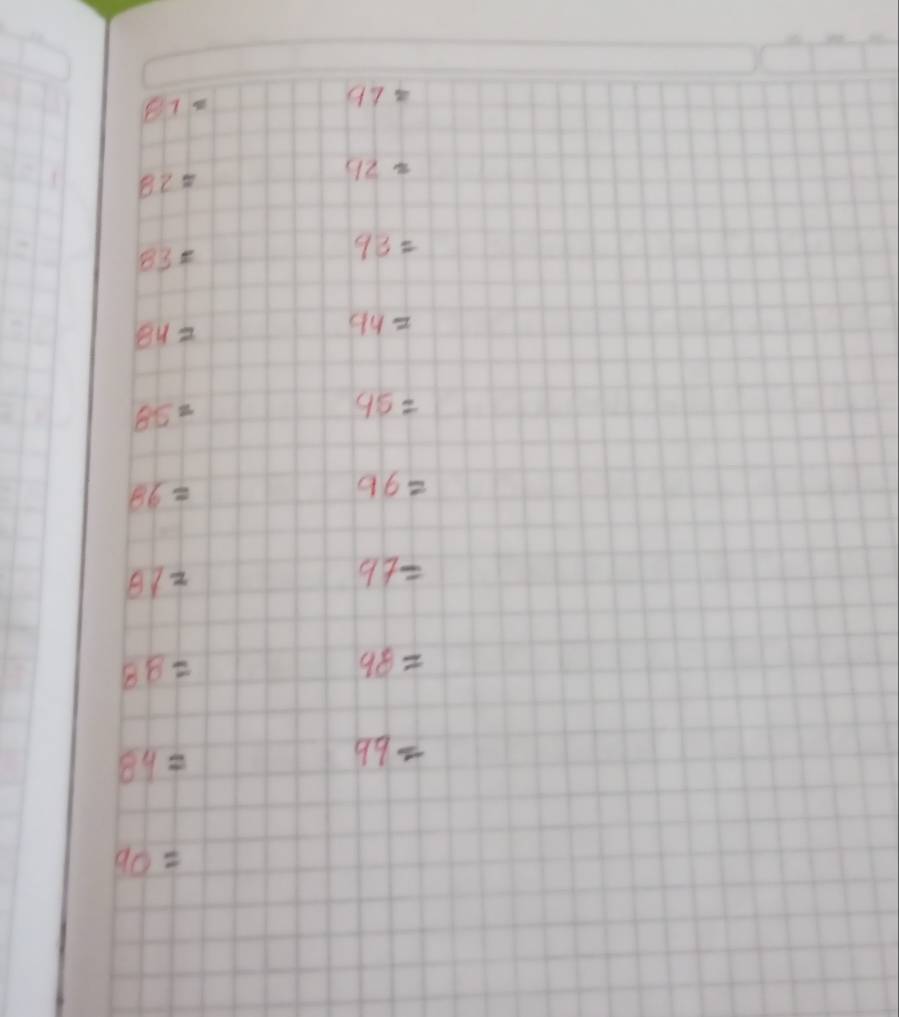 81=
82=
83=
84=
85=
86=
87=
88=
89=
90=
91=
92=
93=
94=
95=
96=
97=
98=
99=